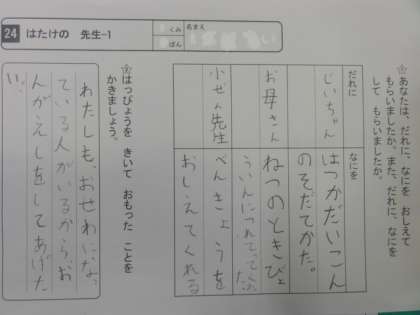 24 はたけの 先生-1
くみ
ばん
名まえ
☆あなたは、だれに、なにを おしえて
もらいましたか。また、だれに、なにを
して もらいましたか。
だれに
なにを
じいちゃん
はつかだいこん
のそだてかた。
お母さん
ねつのときびょ
ういんにつれてってくれた
小ぜき先生
べんきょうを
おしえてくれる
☆はっぴょうを きいて おもった ことを
かきましょう。
わたしも、おせわにな、
ている人がいるから、お
んがえしをしてあげた
い。